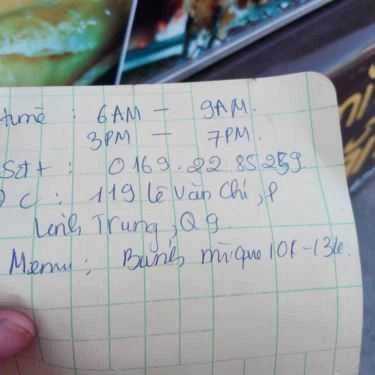 time : 6AM – 9AM.
3PM – 7PM.
Sđt : 0169.22 85259
Đ C : 119 Lê Văn Chí, P
Linh Trung, Q9.
Menu ; Bánh mì que 10k – 13k.